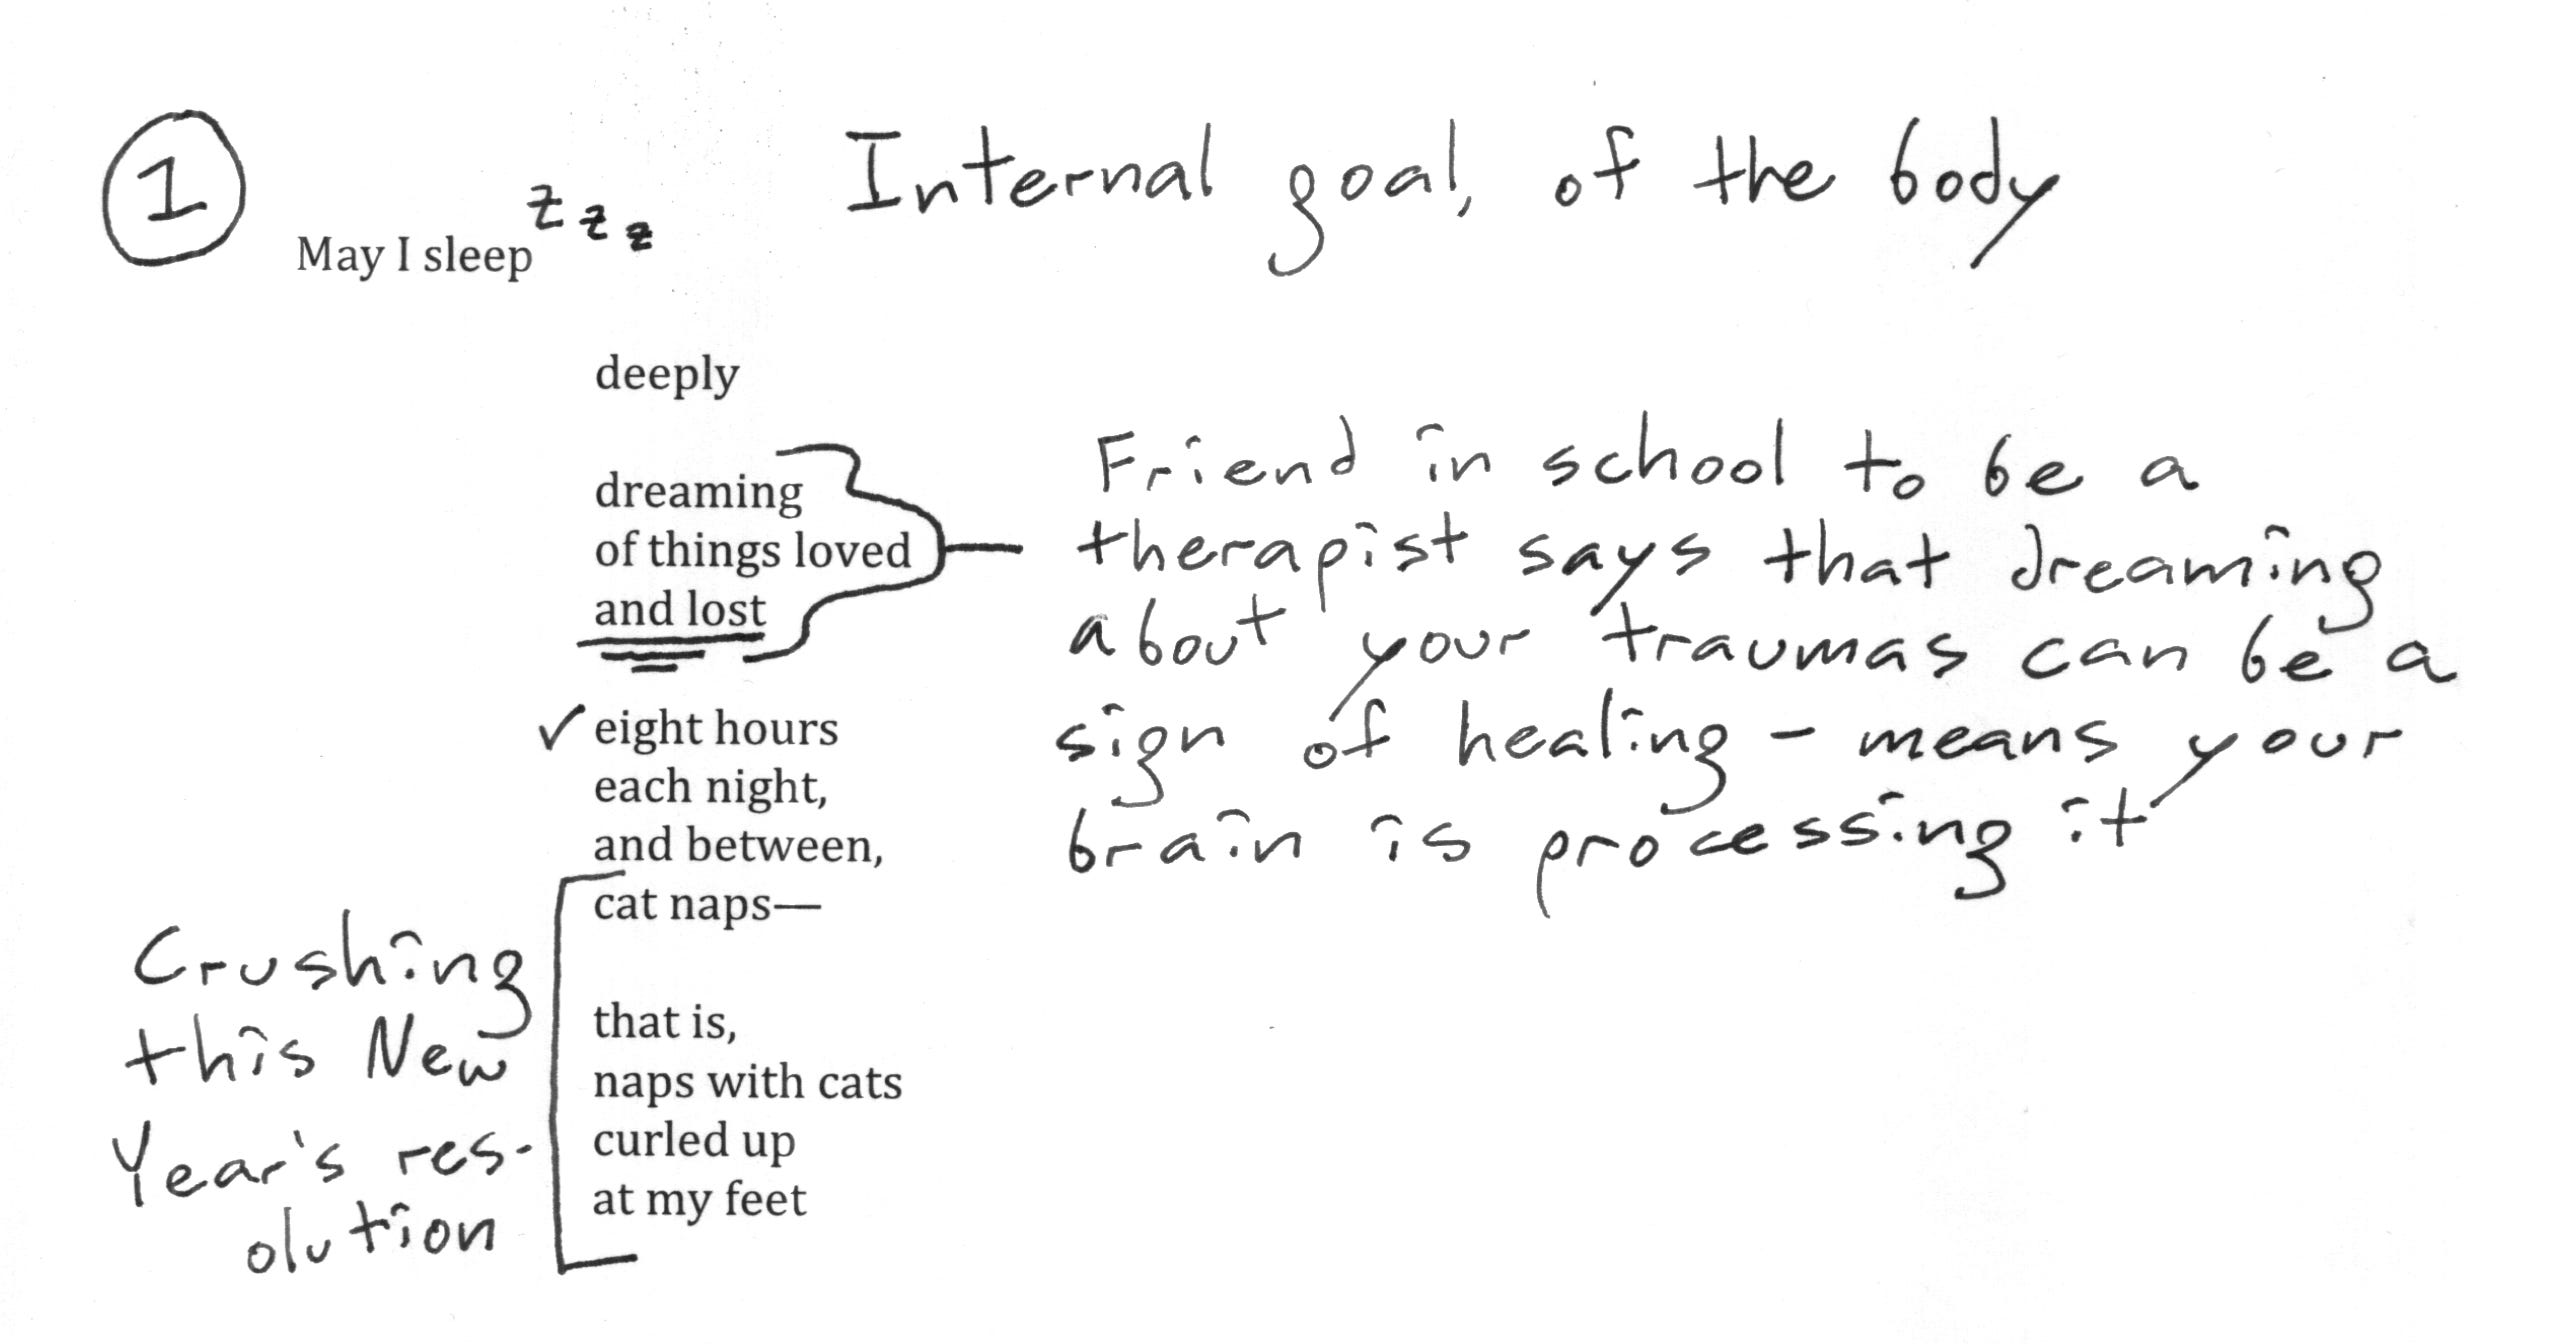 1
Internal goal, of the body
z z z
May I sleep
deeply
dreaming
of things loved
and lost
Friend in school to be a
therapist says that dreaming
about your traumas can be a
sign of healing - means your
brain is processing it
eight hours
each night,
and between,
cat naps—
that is,
naps with cats
curled up
at my feet
Crushing
this New
Year's res-
olution